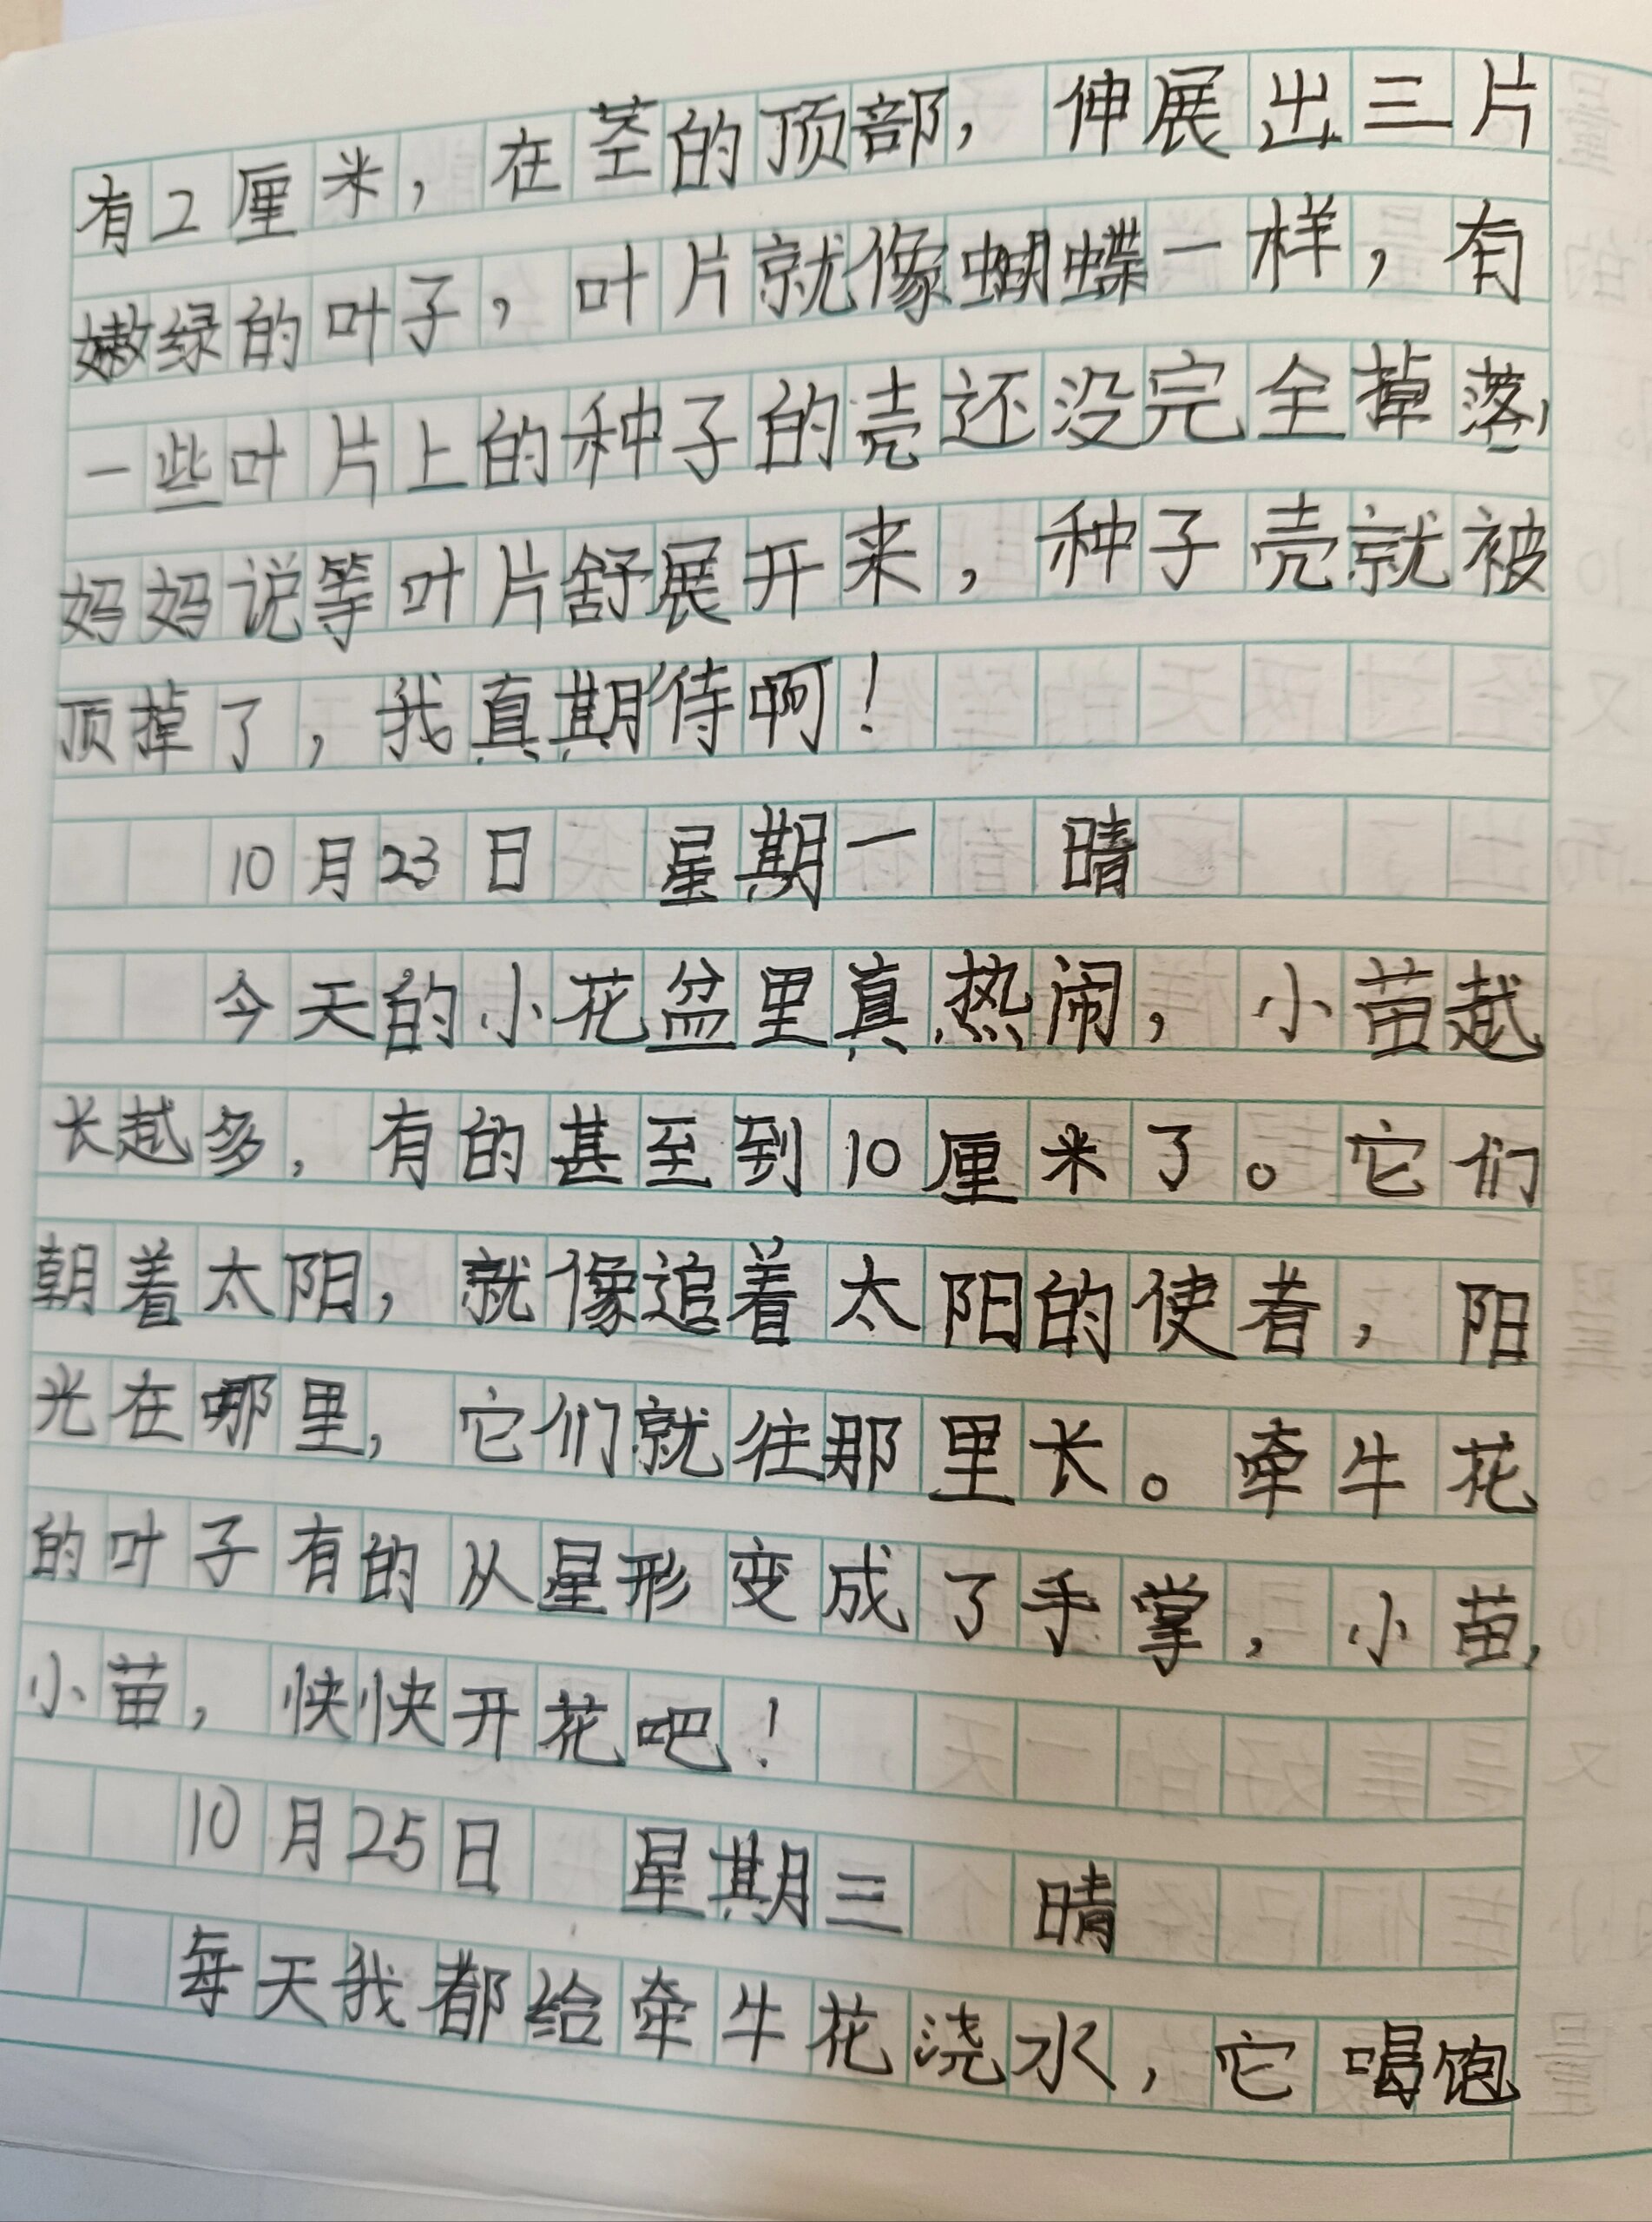 有2厘米，在茎的顶部，伸展出三片
嫩绿的叶子，叶片就像蝴蝶一样，有
一些叶片上的种子的壳还没完全掉落，
妈妈说等叶片舒展开来，种子壳就被
顶掉了，我真期待啊！
10月23日 星期一 晴
今天的小花盆里真热闹，小苗越
长越多，有的甚至到10厘米了。它们
朝着太阳，就像追着太阳的使者，阳
光在哪里，它们就往那里长。牵牛花
的叶子有的从星形变成了手掌，小苗，
小苗，快快开花吧！
10月25日 星期三 晴
每天我都给牵牛花浇水，它喝饱